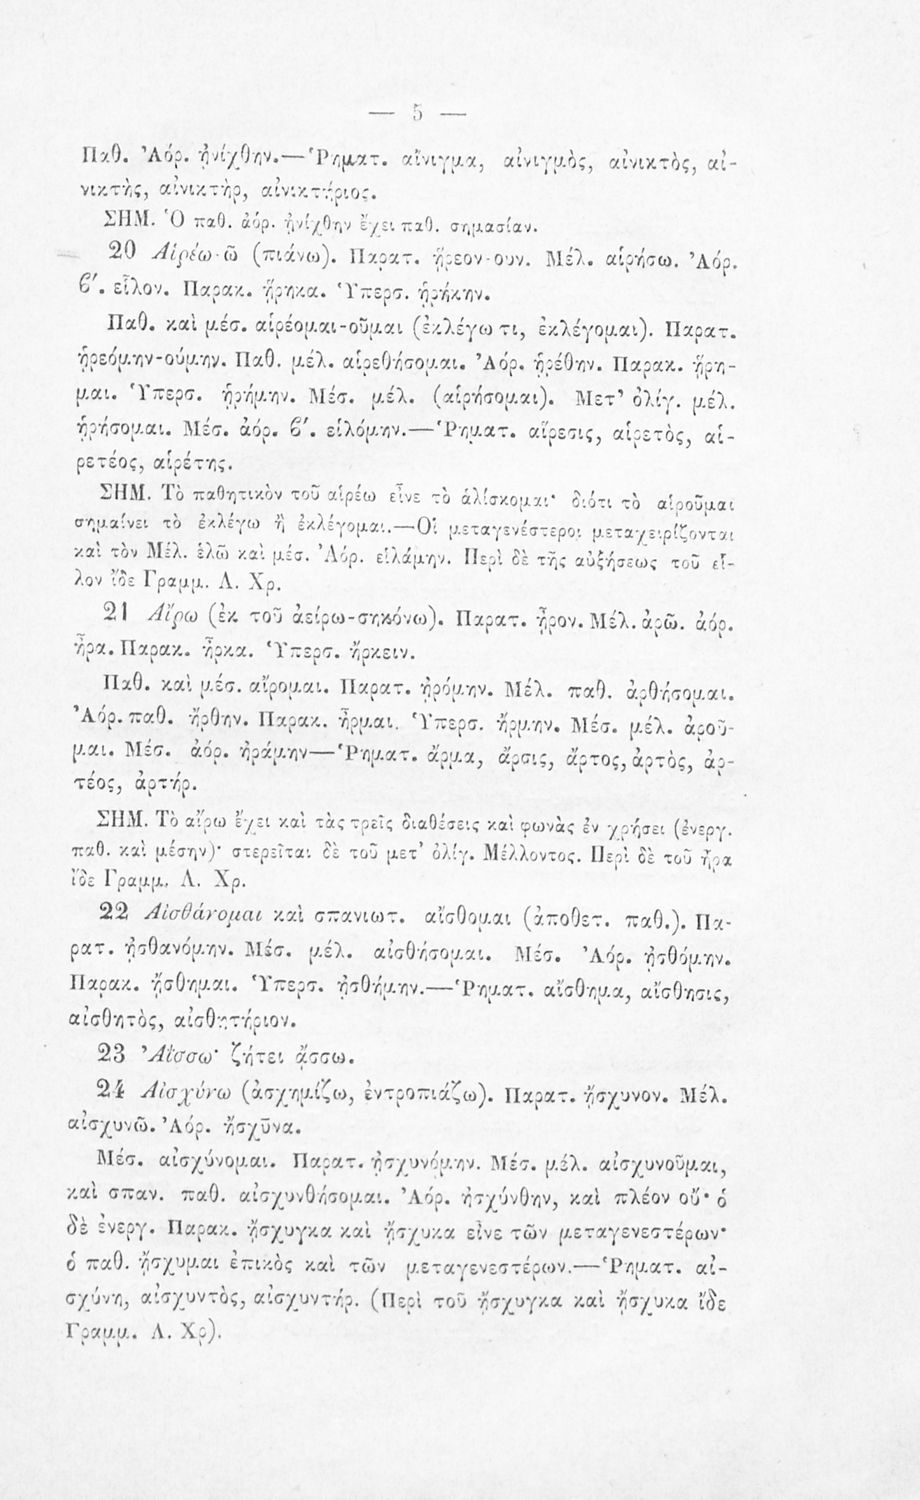 — 5 —
Παθ. Ἀόρ. ᾐνίχθην.—Ῥηματ. αἴνιγμα, αἰνιγμὸς, αἰνικτὸς, αἰ-
νικτὴς, αἰνικτὴρ, αἰνικτήριος.
ΣΗΜ. Ὁ παθ. ἀόρ. ᾐνίχθην ἔχει παθ. σημασίαν.
20 Αἱρέω-ῶ (πιάνω). Παρατ. ᾕρεον-ουν. Μέλ. αἱρήσω. Ἀόρ.
ϐ′. εἷλον. Παρακ. ᾕρηκα. Ὑπερσ. ᾑρήκην.
Παθ. καὶ μέσ. αἱρέομαι-οῦμαι (ἐκλέγω τι, ἐκλέγομαι). Παρατ.
ᾑρεόμην-ούμην. Παθ. μέλ. αἱρεθήσομαι. Ἀόρ. ᾑρέθην. Παρακ. ᾕρη-
μαι. Ὑπερσ. ᾑρήμην. Μέσ. μέλ. (αἱρήσομαι). Μετ’ ὀλίγ. μέλ.
ᾑρήσομαι. Μέσ. ἀόρ. ϐ′. εἱλόμην.—Ῥηματ. αἵρεσις, αἱρετὸς, αἱ-
ρετέος, αἱρέτης.
ΣΗΜ. Τὸ παθητικὸν τοῦ αἱρέω εἶνε τὸ ἁλίσκομαι· διότι τὸ αἱροῦμαι
σημαίνει τὸ ἐκλέγω ἢ ἐκλέγομαι.—Οἱ μεταγενέστεροι μεταχειρίζονται
καὶ τὸν Μέλ. ἑλῶ καὶ μέσ. Ἀόρ. εἱλάμην. Περὶ δὲ τῆς αὐξήσεως τοῦ εἷ-
λον ἴδε Γραμμ. Λ. Χρ.
21 Αἴρω (ἐκ τοῦ ἀείρω-σηκόνω). Παρατ. ᾖρον. Μέλ. ἀρῶ. ἀόρ.
ᾖρα. Παρακ. ἦρκα. Ὑπερσ. ἤρκειν.
Παθ. καὶ μέσ. αἴρομαι. Παρατ. ᾐρόμην. Μέλ. παθ. ἀρθήσομαι.
Ἀόρ. παθ. ἤρθην. Παρακ. ἦρμαι. Ὑπερσ. ἤρμην. Μέσ. μέλ. ἀροῦ-
μαι. Μέσ. ἀόρ. ἠράμην—Ῥηματ. ἄρμα, ἄρσις, ἄρτος, ἀρτὸς, ἀρ-
τέος, ἀρτήρ.
ΣΗΜ. Τὸ αἴρω ἔχει καὶ τὰς τρεῖς διαθέσεις καὶ φωνὰς ἐν χρήσει (ἐνεργ.
παθ. καὶ μέσην)· στερεῖται δὲ τοῦ μετ’ ὀλίγ. Μέλλοντος. Περὶ δὲ τοῦ ἦρα
ἴδε Γραμμ. Λ. Χρ.
22 Αἰσθάνομαι καὶ σπανιωτ. αἴσθομαι (ἀποθετ. παθ.). Πα-
ρατ. ᾐσθανόμην. Μέσ. μέλ. αἰσθήσομαι. Μέσ. Ἀόρ. ᾐσθόμην.
Παρακ. ᾔσθημαι. Ὑπερσ. ᾐσθήμην.—Ῥηματ. αἴσθημα, αἴσθησις,
αἰσθητὸς, αἰσθητήριον.
23 Ἀΐσσω· ζήτει ᾄσσω.
24 Αἰσχύνω (ἀσχημίζω, ἐντροπιάζω). Παρατ. ᾔσχυνον. Μέλ.
αἰσχυνῶ. Ἀόρ. ᾔσχῦνα.
Μέσ. αἰσχύνομαι. Παρατ. ᾐσχυνόμην. Μέσ. μέλ. αἰσχυνοῦμαι,
καὶ σπαν. παθ. αἰσχυνθήσομαι. Ἀόρ. ᾐσχύνθην, καὶ πλέον οὔ· ὁ
δὲ ἐνεργ. Παρακ. ᾔσχυγκα καὶ ᾔσχυκα εἶνε τῶν μεταγενεστέρων·
ὁ παθ. ᾔσχυμαι ἐπικὸς καὶ τῶν μεταγενεστέρων.—Ῥηματ. αἰ-
σχύνη, αἰσχυντὸς, αἰσχυντήρ. (Περὶ τοῦ ᾔσχυγκα καὶ ᾔσχυκα ἴδε
Γραμμ. Λ. Χρ).